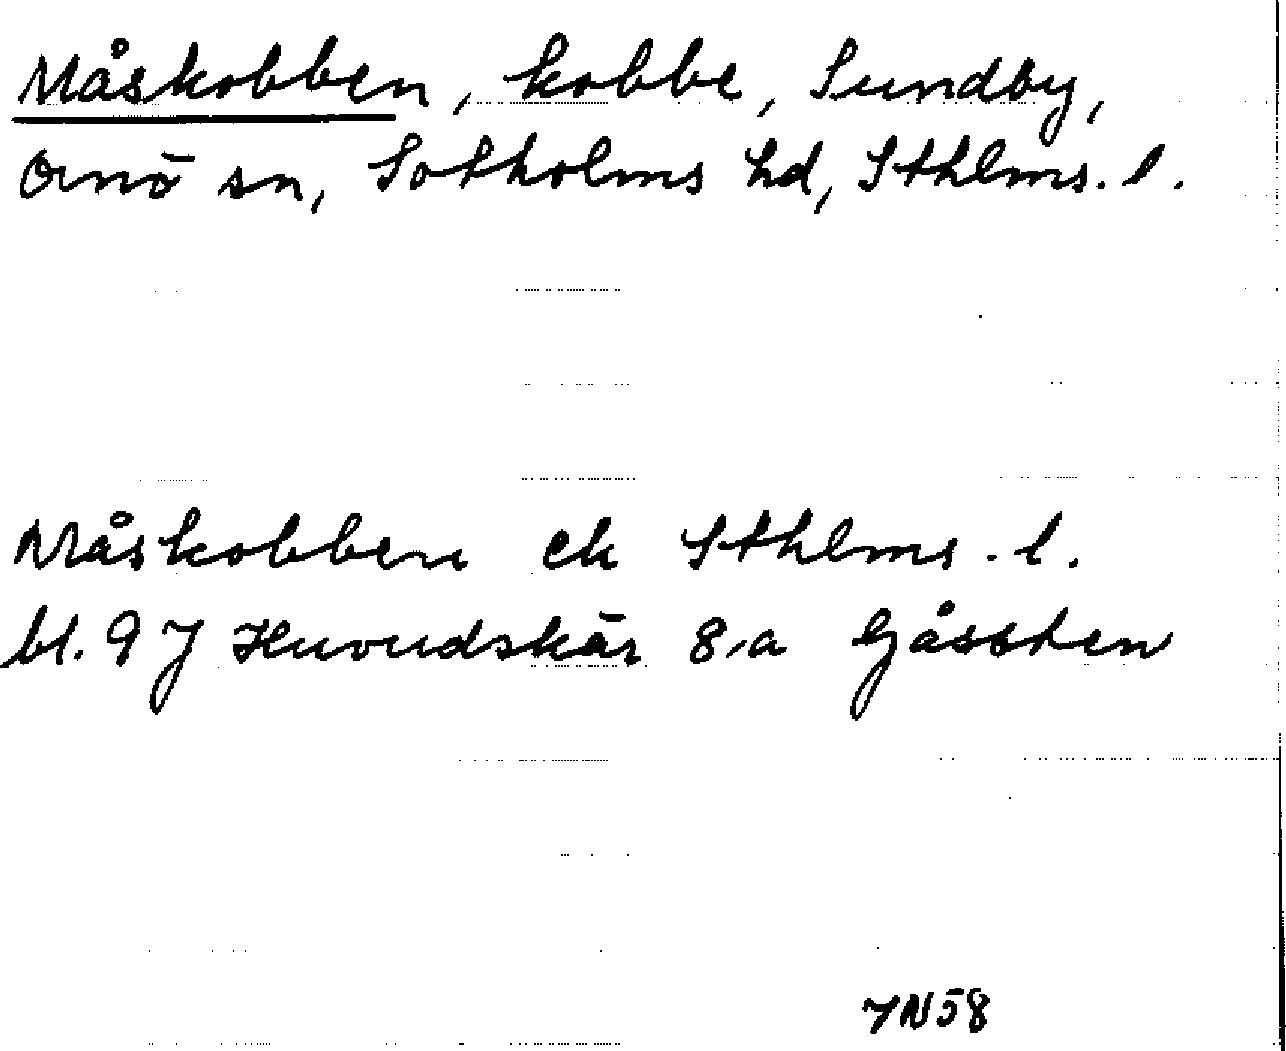 Måskobben, kobbe, Sundby,
Ornö sn, Sotholms hd, Sthlms. l.
Måskobben ek Sthlms. l.
bl. 9 J Huvudskär 8,a Gåssten
JN58